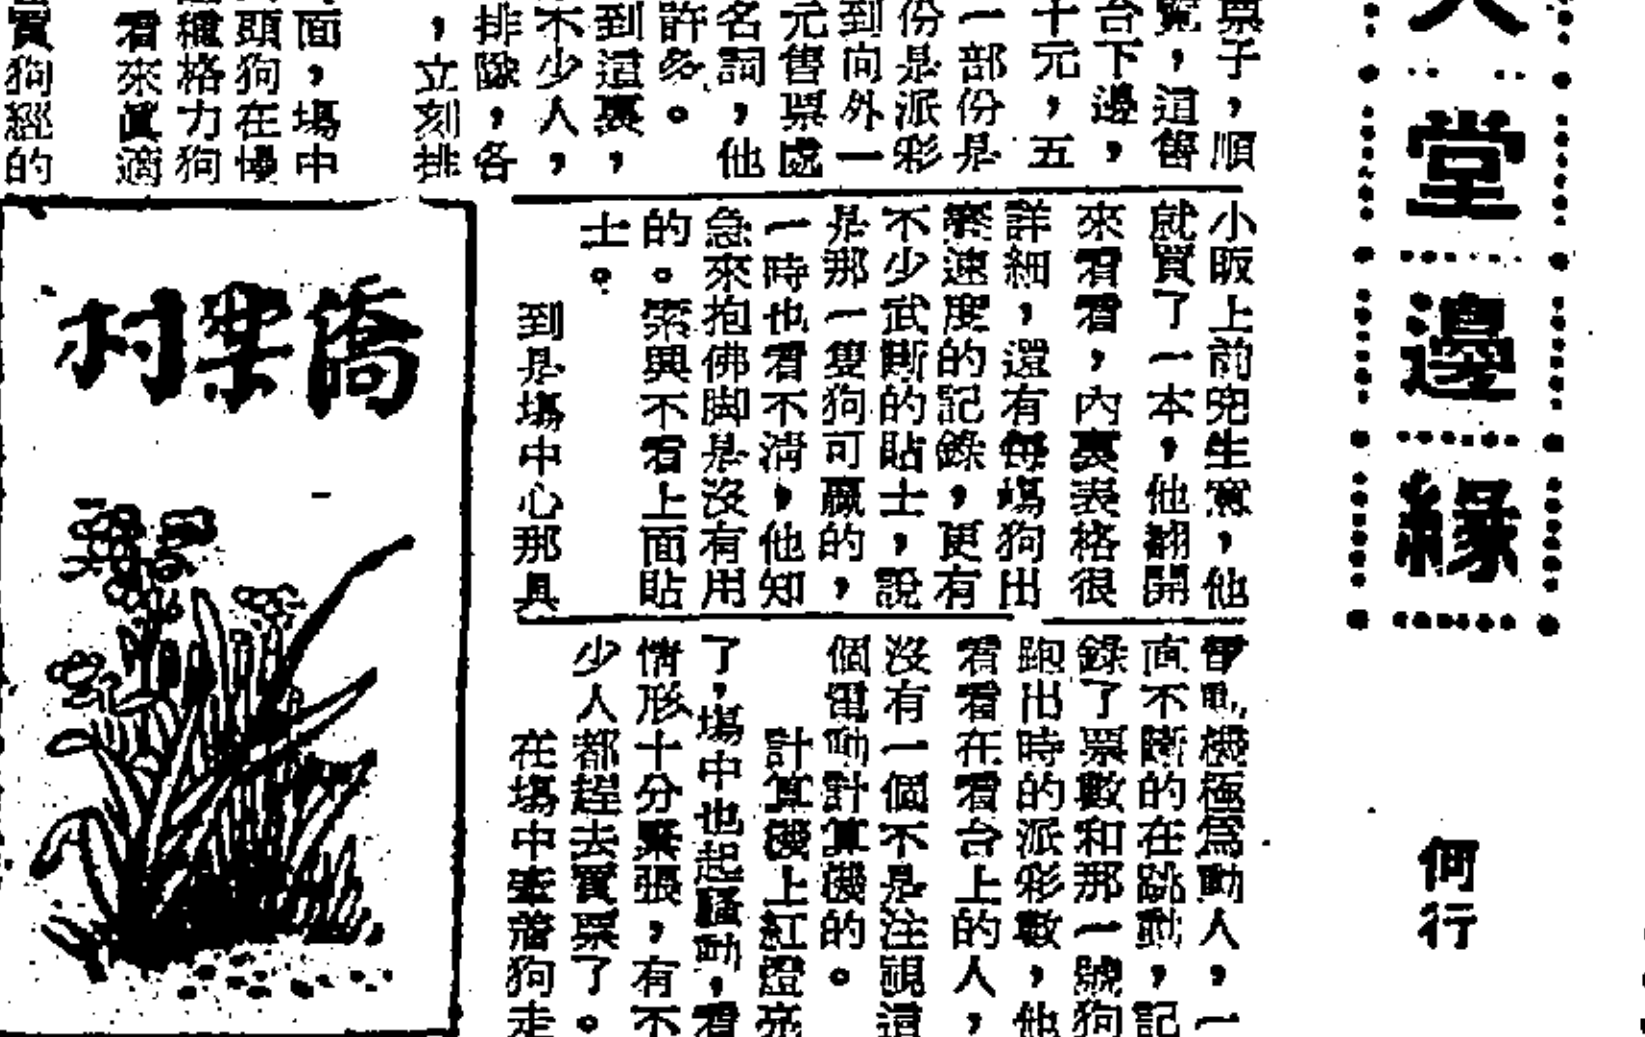 堂邊緣
何行
票子，順
覽，這售
台下邊，
十元，五
一部份是
份是派彩
到向外一
元售票處
名詞，他
許多。
到這裏，
不少人，
排隊，各
，立刻排
面，場中
頭狗在慢
格力狗
看來眞適
買狗經的
小販上前兜生意，他
就買了一本，他翻開
來看看，內裏表格很
詳細，還有每場狗出
賽速度的記錄，更有
不少武斷的貼士，說
是那一隻狗可贏的，
一時也看不清，他知
急來抱佛脚是沒有用
的。索興不看上面貼
士。
到是場中心那具
動機極爲動人，一
直不斷的在跳動，記
錄了票數和那一號狗
跑出時的派彩數，他
看看在看台上的人，
沒有一個不是注視這
個電動計算機的。
計算機上紅燈亮
了，場中也起騷動，看
情形十分緊張，有不
少人都趕去買票了。
在場中牽着狗走
僑樂村